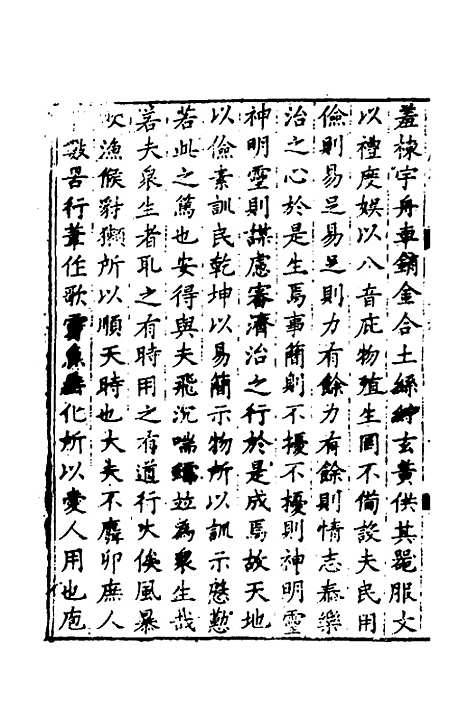 羞棟宇舟車銷金合土絲紵玄黃供其器服文
以禮度娛以八音庇物殖生罔不備設夫民用
儉則易足易足則力有餘力有餘則情志泰樂
治之心於是生焉事簡則不擾不擾則神明靈
神明靈則謀慮審濟治之行於是成焉故天地
以儉素訓民乾坤以易簡示物所以訓示慇懃
若此之篤也安得與夫飛沉喘蠕並為衆生哉
若夫衆生者取之有時用之有道行火俟風暴
漁候豺獺所以順天時也大夫不麛卵庶人
數罟行葦作歌化所以愛人用也庖